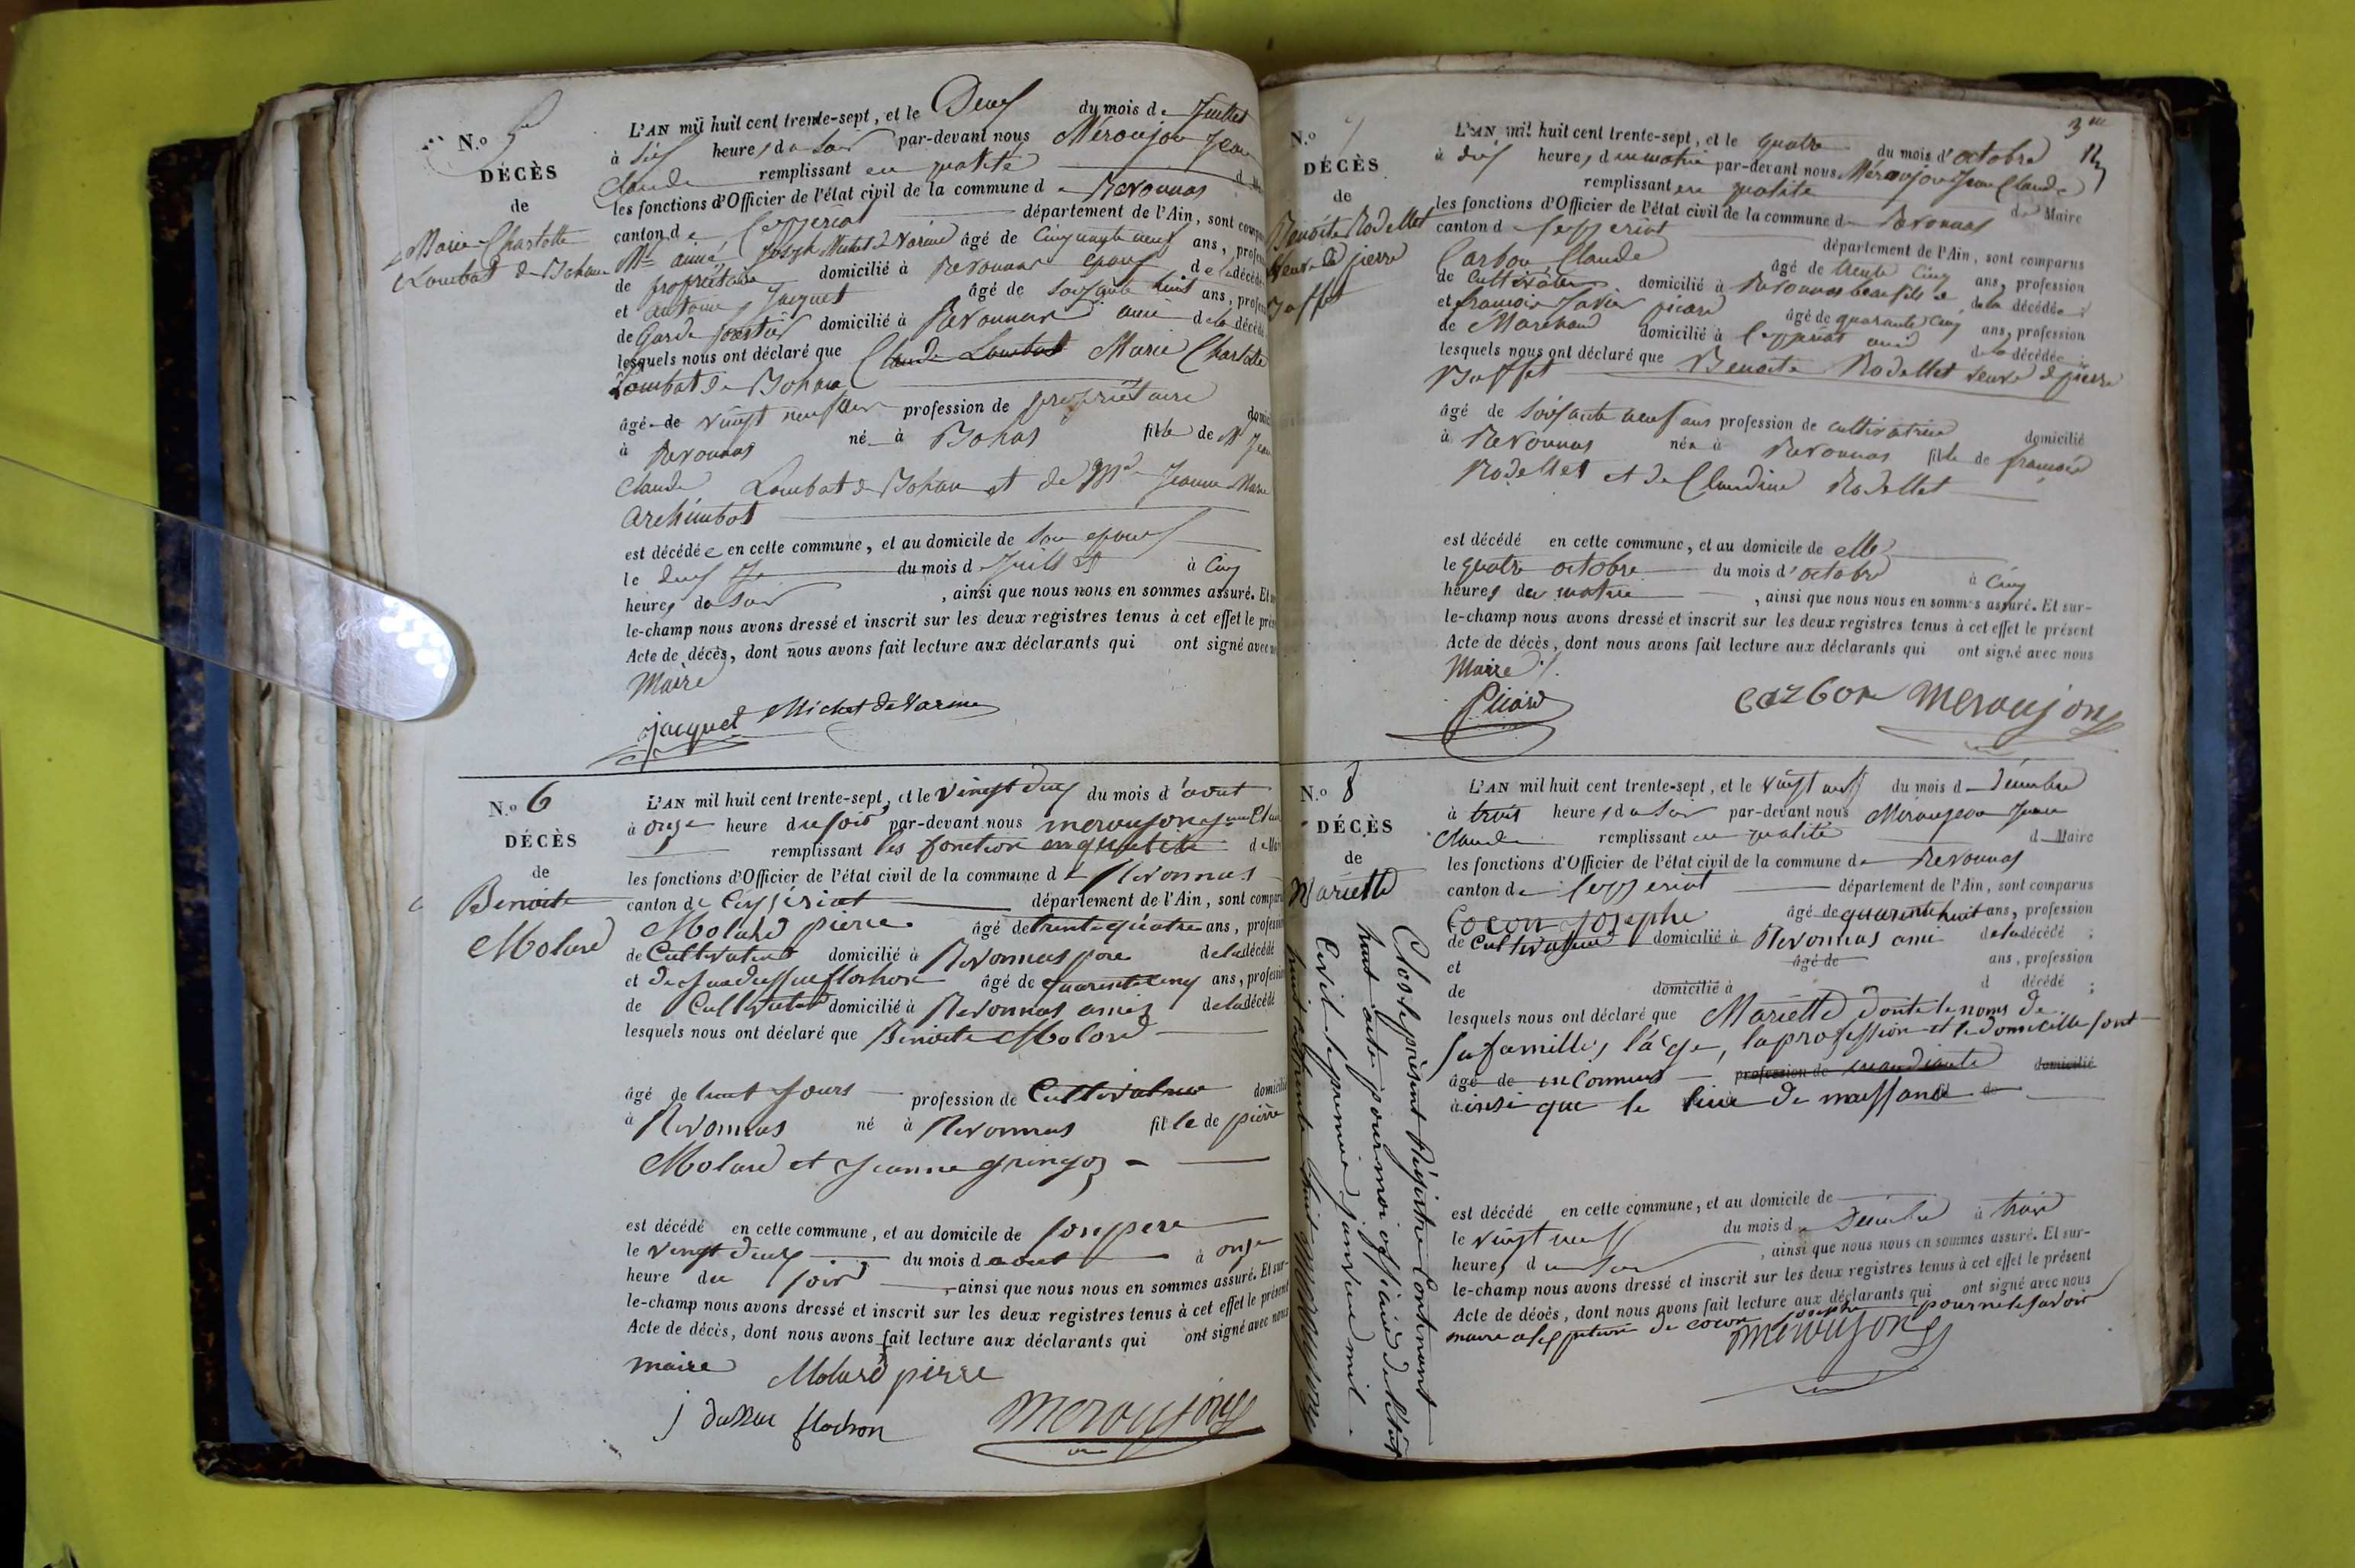 N.o 5
DÉCÈS
de
Marie Charlotte
Loubat de Bohan
L'AN mil huit cent trente-sept, et le Deux du mois de Juillet
à six heures du soir par-devant nous Méroujon Jean
Claude remplissant en qualité d
les fonctions d'Officier de l'état civil de la commune de Revonnas
canton de Ceyzeriat département de l'Ain, sont
Mr aimé Joseph Michet de Varine âgé de Cinquante neuf ans,
de propriétaire domicilié à Revonnas epoux de la décédé
et antoine Jacquet âgé de soixante huit ans,
de Garde forestier domicilié à Revonnas ami de la décédé
lesquels nous ont déclaré que Claude Loubat Marie Charlotte
Loubat de Bohan
âgé de vingt neuf ans profession de propriétaire
à Revonnas né à Bohas fille de Mr Jean
Claude Loubat de Bohan et de Md Jeanne Marie
Archimbot
est décédée en cette commune, et au domicile de son epoux
le deux du mois de Juillet à Cinq
heures du soir, ainsi que nous nous en sommes assuré. Et
le-champ nous avons dressé et inscrit sur les deux registres tenus à cet effet le
Acte de décès, dont nous avons fait lecture aux déclarants qui ont signé avec
Maire
jacquet Michet de Varine
N.o 6
DÉCÈS
de
Benoite
Molard
L'AN mil huit cent trente-sept, et le vingt deux du mois d'aout
à onze heure du soir par-devant nous meroujon
remplissant les fonction en qualité de
les fonctions d'Officier de l'état civil de la commune de Revonnas
canton de Ceyzériat département de l'Ain, sont
Molard pierre âgé de trente quatre ans,
de Cultivateur domicilié à Revonnas pere de la décédé
et âgé de quarente cinq ans,
de Cultivateur domicilié à Revonnas amis de la décédé
lesquels nous ont déclaré que Benoite Molard
âgé de huit jours profession de Cultivatrice
à Revonnas né à Revonnas fille de pierre
Molard et jeanne gringoz
est décédé en cette commune, et au domicile de son pere
le vingt deux du mois d aout à onze
heure du soir, ainsi que nous nous en sommes assuré. Et sur-
le-champ nous avons dressé et inscrit sur les deux registres tenus à cet effet le présent
Acte de décès, dont nous avons fait lecture aux déclarants qui ont signé avec nous
maire Molard pierre
flochon meroujon
N.o 7
DÉCÈS
de
Benoite Rodellet
veuve de pierre
Boffet
3me
L'AN mil huit cent trente-sept, et le quatre du mois d'octobre
à dix heures du matin par-devant nous Méroujon Jean Claude
remplissant en qualité de Maire
les fonctions d'Officier de l'état civil de la commune de Revonnas
canton de Ceyzeriat département de l'Ain, sont comparus
Carbon Claude âgé de trente cinq ans, profession
de Cultivateur domicilié à Revonnas beau fils de la décédée;
et francois picard âgé de quarante cinq ans, profession
de Marchand domicilié à Ceyzeriat ami de la décédée;
lesquels nous ont déclaré que Benoite Rodellet veuve de pierre
Boffet
âgé de soixante neuf ans profession de cultivatrice domicilié
à Revonnas née à Revonnas fille de francois
Rodellet et de Claudine Rodellet
est décédé en cette commune, et au domicile de elle
le quatre octobre du mois d'octobre à Cinq
heures du matin, ainsi que nous nous en sommes assuré. Et sur-
le-champ nous avons dressé et inscrit sur les deux registres tenus à cet effet le présent
Acte de décès, dont nous avons fait lecture aux déclarants qui ont signé avec nous
Maire
Picard carbon meroujon
N.o 8
DÉCÈS
de
Mariette
L'AN mil huit cent trente-sept, et le vingt neuf du mois d décembre
à trois heures du soir par-devant nous Méroujon Jean
Claude remplissant en qualité de Maire
les fonctions d'Officier de l'état civil de la commune de Revonnas
canton de Ceyzeriat département de l'Ain, sont comparus
Cocon josephe âgé de quarente huit ans, profession
de Cultivateur domicilié à Revonnas ami de la décédé;
et âgé de ans, profession
de domicilié à d décédé;
lesquels nous ont déclaré que Mariette donte le noms de
sa famille, l'age, la profession et le domicille sont
âgé de inconnus profession de mandiante domicilié
ainsi que le lieu de naissance
est décédé en cette commune, et au domicile de
le vingt neuf du mois de décembre à trois
heures du soir, ainsi que nous nous en sommes assuré. Et sur-
le-champ nous avons dressé et inscrit sur les deux registres tenus à cet effet le présent
Acte de décès, dont nous avons fait lecture aux déclarants qui ont signé avec nous
maire a l'exception de cocon josephe pour ne le savoir
meroujon
Clos le présent Régistre Contenant
huit acte par moi officier de l'état
Civil le premier janvier mil
huit cent trente huit meroujon